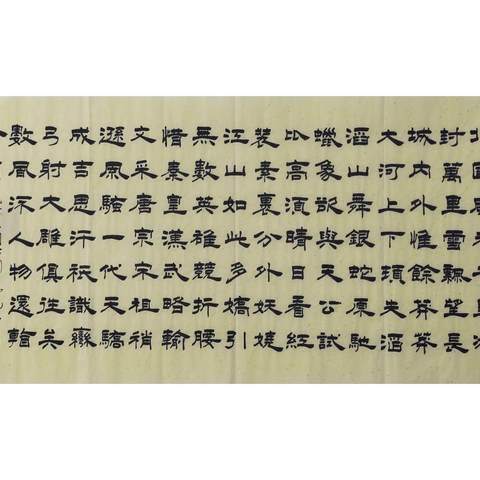 封萬里雪飄望長
城內外惟餘莽莽
大河上下頓失滔
滔山舞銀蛇原馳
蠟象欲與天公試
比高須晴日看紅
裝素裹分外妖嬈
江山如此多嬌引
無數英雄競折腰
惜秦皇漢武略輸
文采唐宗宋祖稍
遜風騷一代天驕
成吉思汗祇識彎
弓射大雕俱往矣
數風流人物還